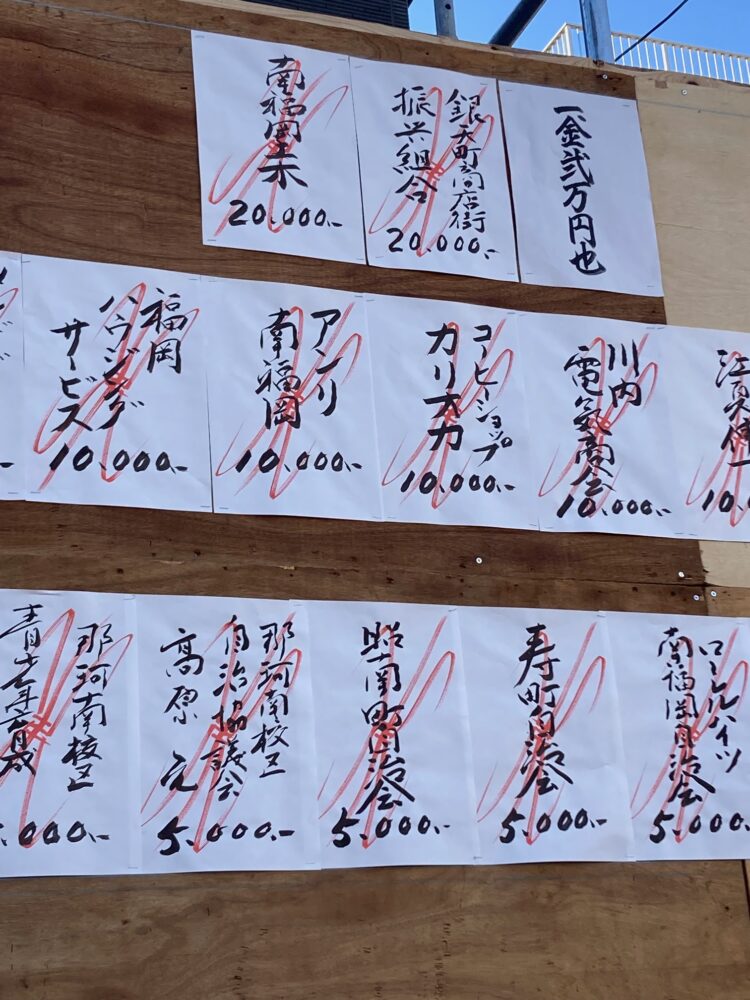 一金弐万円也
銀天町商店街
振興組合
20.000.-
南福岡
20.000.-
10.0
川内
電気商会
10.000.-
コーヒーショップ
カリオカ
10.000.-
アンリ
南福岡
10.000.-
福岡
ハウジング
サービス
10.000.-
南福岡自治会
5.000.-
寿町自治会
5.000.-
昭南町自治会
5.000.-
那珂南校区
自治協議会
高原
5.000.-
那珂南校区
青少年育成
.000.-